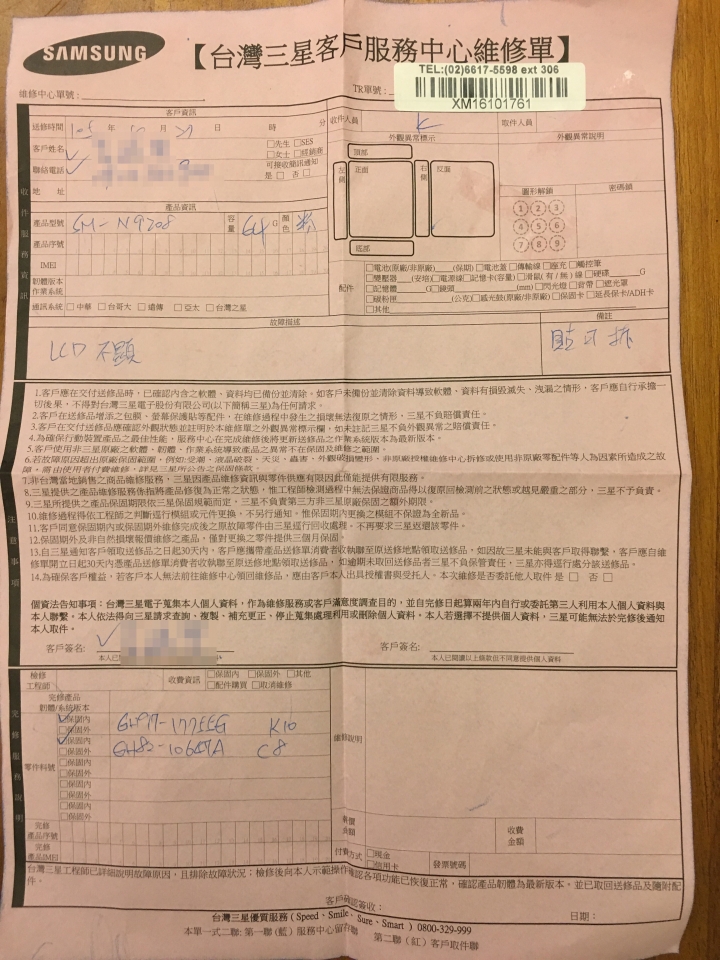 SAMSUNG
【台灣三星客戶服務中心維修單】
TEL:(02)6617-5598 ext 306
XM16101761
維修中心單號：
TR單號：
客戶資訊
收件人員
取件人員
送修時間 105 年 10 月 29 日 時 分
外觀異常標示
外觀異常說明
客戶姓名
□先生 □SES
□女士 □經銷商
聯絡電話
可接收簡訊通知
是 □ 否 □
地 址
頂部
左側
正面
右側
反面
底部
圖形解鎖
密碼鎖
1 2 3
4 5 6
7 8 9
收件服務資訊
產品資訊
產品型號 SM-N9208 容量 64 G 顏色 粉
產品序號
IMEI
韌體版本
作業系統
通訊系統 □中華 □台哥大 □遠傳 □亞太 □台灣之星
配件
□電池(原廠/非原廠)____(保期) □電池蓋 □傳輸線 □座充 □觸控筆
□變壓器____(安培)□電源線□記憶卡(容量)□滑鼠(有/無)線□硬碟____G
□記憶體____G□鏡頭____(mm)□閃光燈□背帶□遮光罩
□碳粉匣____(公克)□感光鼓(原廠/非原廠)□保固卡□延長保卡/ADH卡
□其他
故障描述
備註
LCD 不顯
貼可拆
注意事項
1.客戶應在交付送修品時，已確認內含之軟體、資料均已備份並清除。如客戶未備份並清除資料導致軟體，資料有損毀滅失、洩漏之情形，客戶應自行承擔一
切後果，不得對台灣三星電子股份有限公司(以下簡稱三星)為任何請求。
2.客戶在送修品增添之包膜、螢幕保護貼等配件，在維修過程中發生之損壞無法復原之情形，三星不負賠償責任。
3.客戶在交付送修品應確認外觀狀態並註明於本維修單之外觀異常標示欄，如未註記三星不負外觀異常之賠償責任。
4.為確保行動裝置產品之最佳性能，服務中心在完成維修後將更新送修品之作業系統版本為最新版本。
5.客戶使用非三星原廠之軟體、韌體、作業系統導致產品之異常不在保固及維修之範圍。
6.若故障原因超出原廠保固範圍，例如:受潮、液晶破裂、天災、蟲害、外觀破損變形、非原廠授權維修中心拆修或使用非原廠零配件等人為因素所造成之故
障，需由使用者付費維修，詳見三星所公告之保固條款。
7.非台灣當地銷售之商品維修服務，三星因產品維修資訊與零件供應有限因此僅能提供有限服務。
8.三星提供之產品維修服務係指將產品修復為正常之狀態，惟工程師檢測過程中無法保證商品得以復原回檢測前之狀態或越見嚴重之部分，三星不予負責。
9.三星所提供之產品保固期限依三星保固規範而定。三星不負責第三方非三星原廠保固之額外期限。
10.維修過程得依工程師之判斷逕行模組或元件更換，不另行通知。惟保固期內更換之模組不保證為全新品。
11.客戶同意保固期內或保固期外維修完成後之原故障零件由三星逕行回收處理，不再要求三星返還該零件。
12.保固期外及非自然損壞報價維修之產品，僅對更換之零件提供三個月保固。
13.自三星通知客戶領取送修品之日起30天內，客戶應攜帶產品送修單消費者收執聯至原送修地點領取送修品，如因故三星未能與客戶取得聯繫，客戶應自維
修單開立日起30天內憑產品送修單消費者收執聯至原送修地點領取送修品，如逾期未取回送修品者三星不負保管責任，三星亦得逕行處分該送修品。
14.為確保客戶權益，若客戶本人無法前往維修中心領回維修品，應由客戶本人出具授權書與受托人。本次維修是否委託他人取件 是 □ 否 □
個資法告知事項：台灣三星電子蒐集本人個人資料，作為維修服務或客戶滿意度調查目的，並自完修日起算兩年內自行或委託第三人利用本人個人資料與
本人聯繫。本人依法得向三星請求查詢、複製、補充更正、停止蒐集處理利用或刪除個人資料。本人若選擇不提供個人資料，三星可能無法於完修後通知
本人取件。
客戶簽名：
客戶簽名:
本人已
本人已閱讀以上條款但不同意提供個人資料
完修服務說明
檢修
工程師
收費資訊
□保固內 □保固外 □其他
□配件購買 □取消維修
完修產品
韌體/系統版本
零件料號
□保固內
□保固外
GH97-17755G K10
□保固內
□保固外
GH82-10647A C8
□保固內
□保固外
□保固內
□保固外
□保固內
□保固外
維修說明
完修
產品序號
完修
產品IMEI
報價
金額
收費
金額
付費方式
□現金
□信用卡
發票號碼
台灣三星工程師已詳細說明故障原因，且排除故障狀況；檢修後向本人示範操作確認各項功能已恢復正常，確認產品韌體為最新版本。並已取回送修品及隨附配
件。
客戶確認簽收：
日期：
台灣三星優質服務 ( Speed、Smile、Sure、Smart ) 0800-329-999
本單一式二聯: 第一聯 (藍) 服務中心留存聯 第二聯 (紅) 客戶取件聯